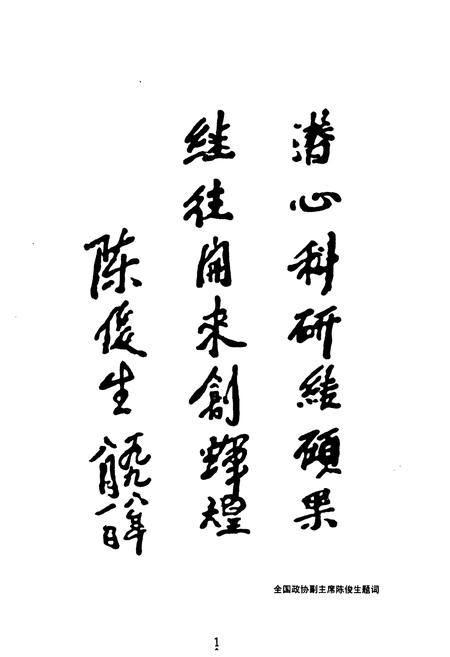 潜心科研结硕果
继往開来創輝煌
陈俊生
一九九八年
八月一日
全国政协副主席陈俊生题词
1